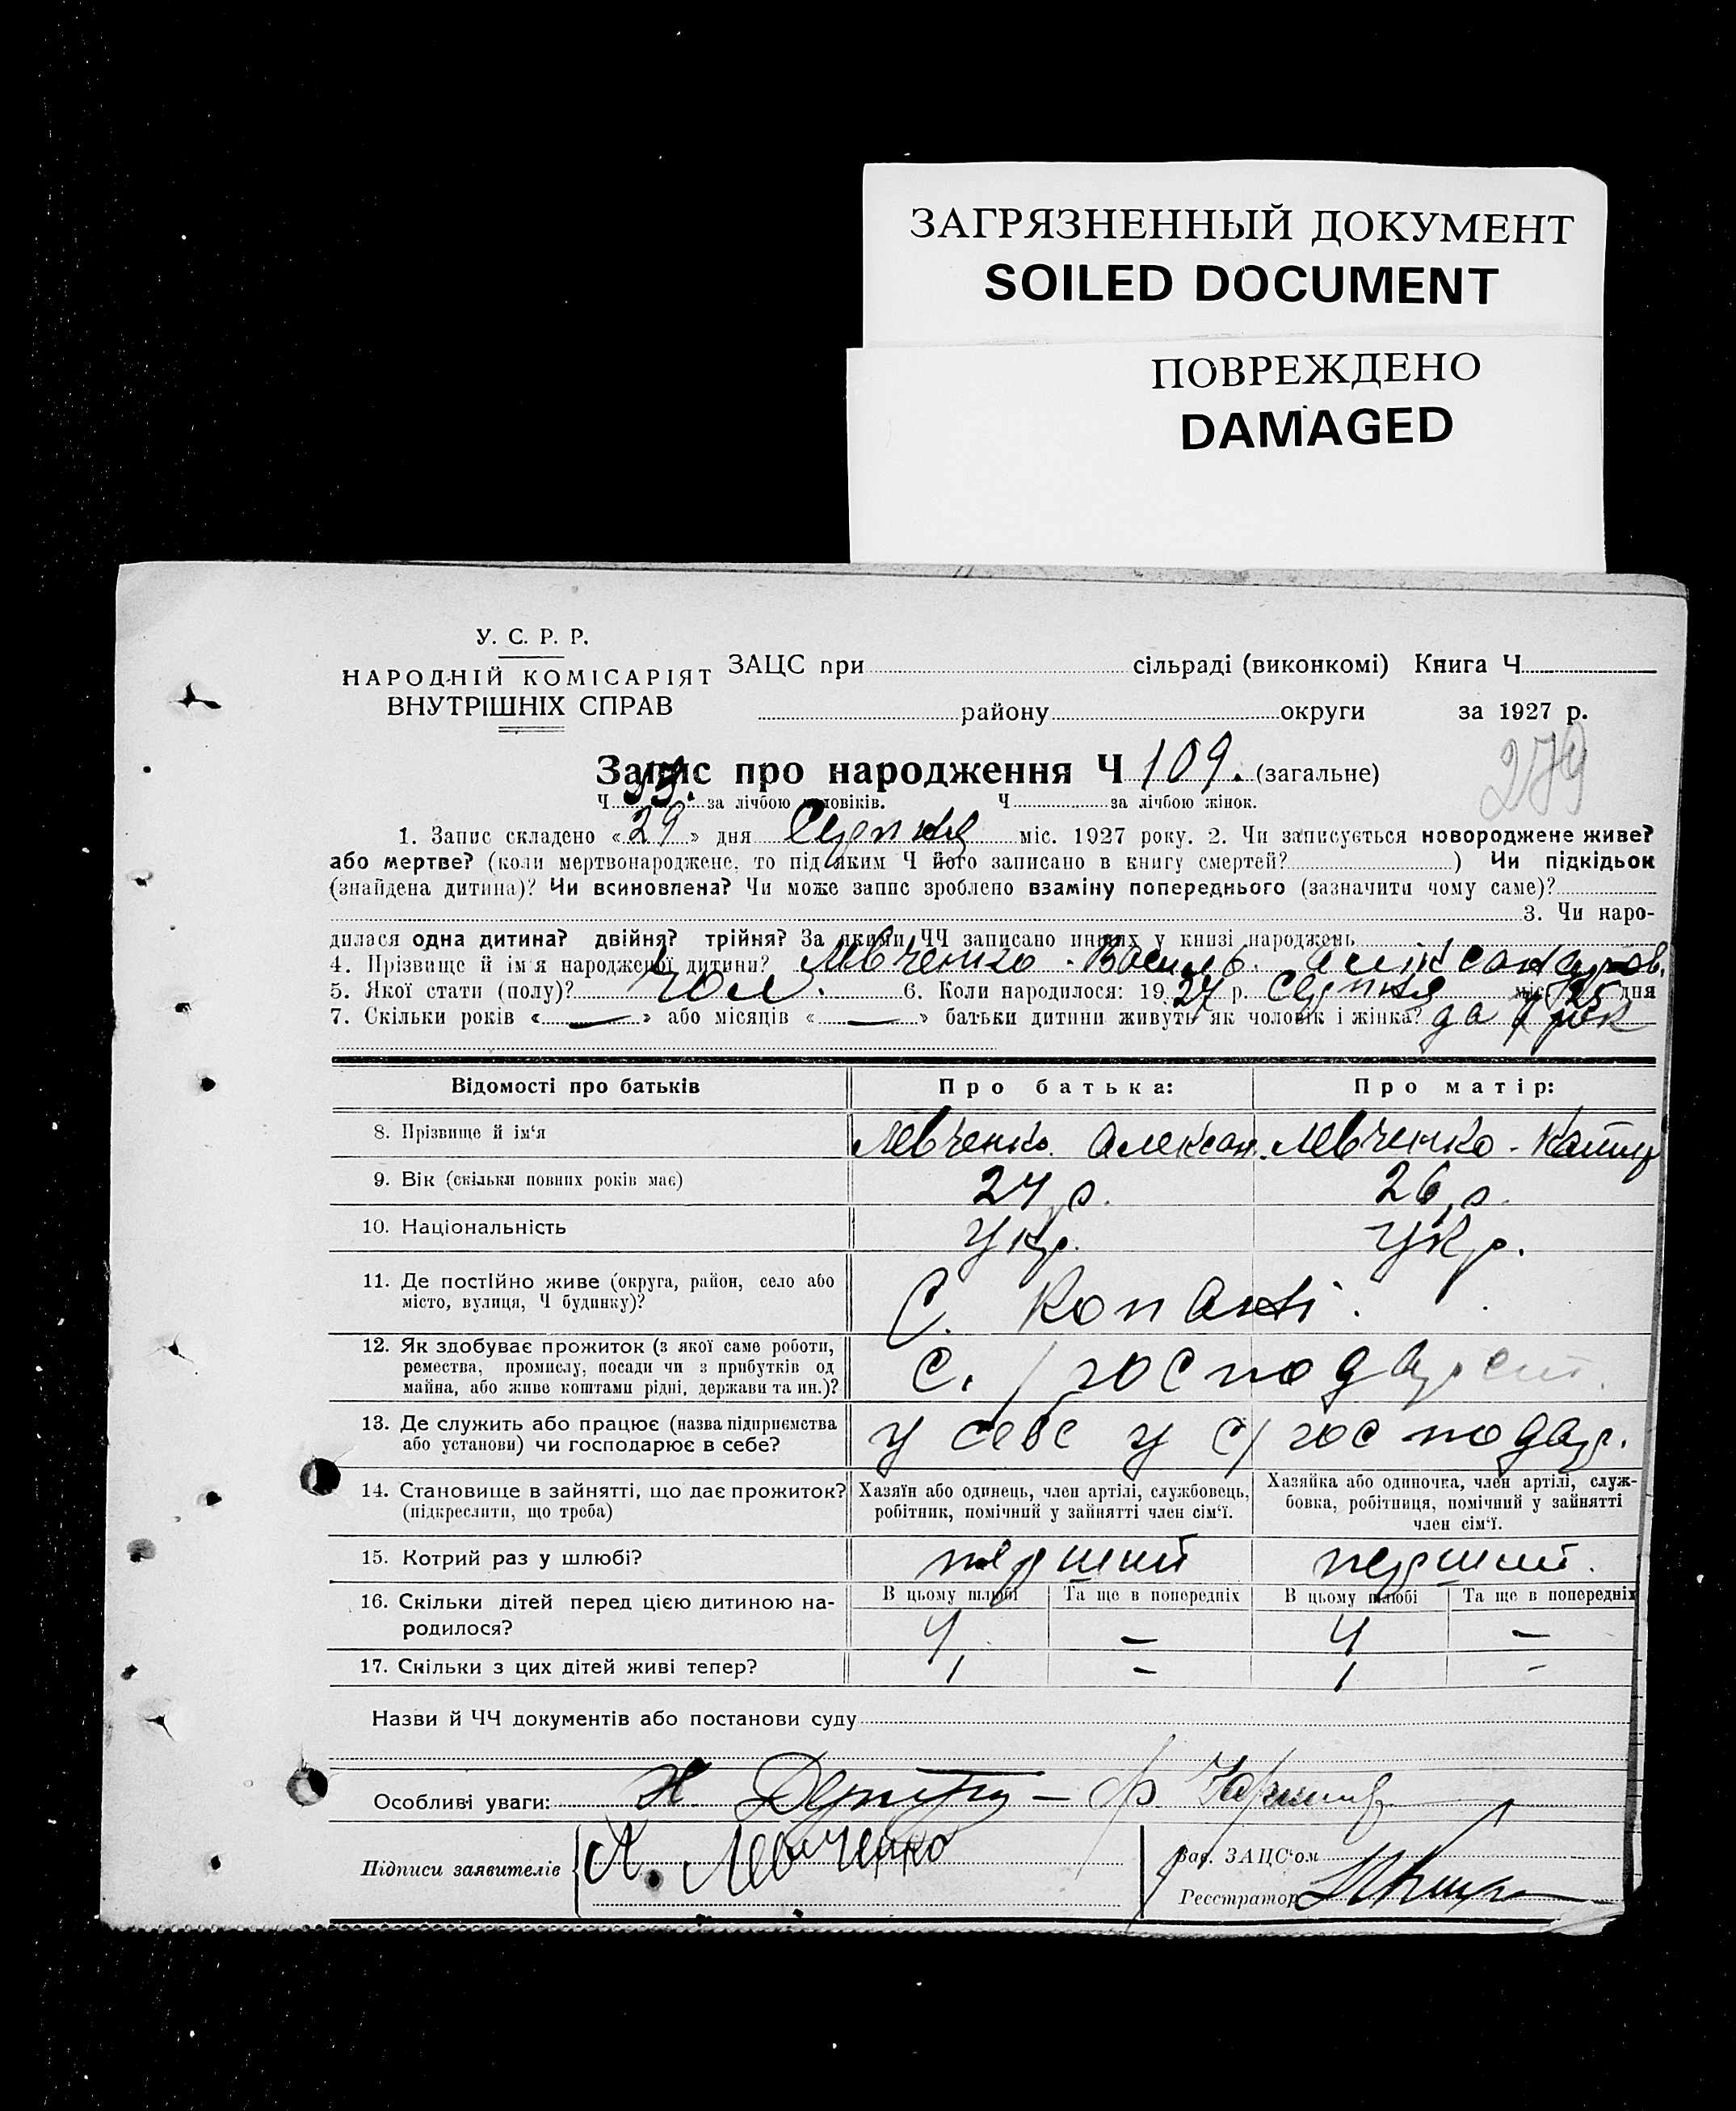 ЗАГРЯЗНЕННЫЙ ДОКУМЕНТ
SOILED DOCUMENT
ПОВРЕЖДЕНО
DAMAGED
У. С. Р. Р.
НАРОДНІЙ КОМІСАРІЯТ
ВНУТРІШНІХ СПРАВ
ЗАЦС при сільраді (виконкомі) Книга Ч
району округи за 1927 р.
279
Запис про народження Ч 109. (загальне)
Ч за лічбою чоловіків. Ч за лічбою жінок.
1. Запис складено «29» дня Серпня міс. 1927 року. 2. Чи записується новороджене живе?
або мертве? (коли мертвонароджене, то під яким Ч його записано в книгу смертей? ) Чи підкідьок
(знайдена дитина)? Чи всиновлена? Чи може запис зроблено взаміну попереднього (зазначити чому саме)?
3. Чи наро-
дилася одна дитина? двійня? трійня? За якими ЧЧ записано инших у книзі народжень
4. Прізвище й ім'я народженої дитини? Левченко - Василь. Аліксандров.
5. Якої стати (полу)? чол. 6. Коли народилося: 1927 р. Серпня міс. 25 дня
7. Скільки років «—» або місяців «—» батьки дитини живуть як чоловік і жінка? да 7 рок
Відомості про батьків
Про батька:
Про матір:
8. Прізвище й ім'я
Левченко. Алексан.
Левченко -
9. Вік (скільки повних років має)
27 р.
26 р.
10. Національність
Укр.
Укр.
11. Де постійно живе (округа, район, село або
місто, вулиця, Ч будинку)?
С. Копані.
12. Як здобуває прожиток (з якої саме роботи,
ремества, промислу, посади чи з прибутків од
майна, або живе коштами рідні, держави та ин.)?
с. / господарст.
13. Де служить або працює (назва підприємства
або установи) чи господарює в себе?
у себе у с/ господар.
14. Становище в зайнятті, що дає прожиток?
(підкреслити, що треба)
Хазяїн або одинець, член артілі, службовець,
робітник, помічний у зайнятті член сім'ї.
Хазяйка або одиночка, член артілі, служ-
бовка, робітниця, помічний у зайнятті
член сім'ї.
15. Котрий раз у шлюбі?
перший
перший.
16. Скільки дітей перед цією дитиною на-
родилося?
В цьому шлюбі
Та ще в попередніх
В цьому шлюбі
Та ще в попередніх
4
—
4
—
17. Скільки з цих дітей живі тепер?
1
-
1
-
Назви й ЧЧ документів або постанови суду
Особливі уваги:
Підписи заявителів
А. Левченко
Зав. ЗАЦС'ом
Реєстратор